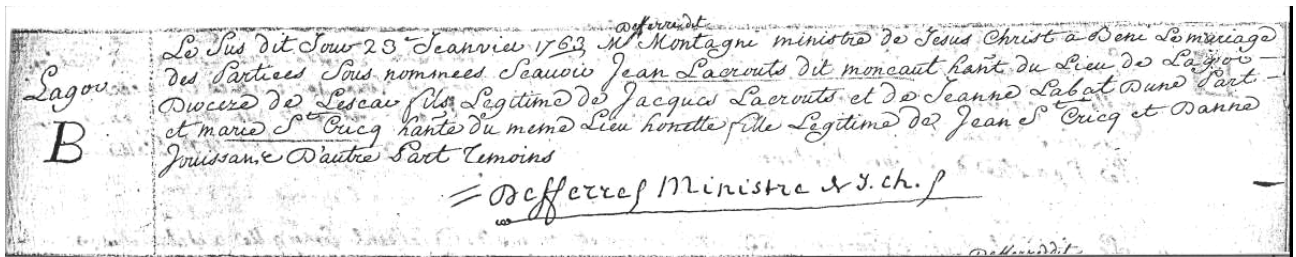 Defferre dit
Le Sus dit Jour 23e Jeanvier 1763 Mr Montagne ministre de Jesus Christ a Beni Le mariage
Lagor
des Partiees Sous nommees Scauoir Jean Lacrouts dit moncaut hant du Lieu de Lagor
B
Diocize de Lescar fils Legitime de Jacques Lacrouts et de Jeanne Labat Dune Part
et marie St Cricq hante du meme Lieu honette fille Legitime de Jean St Cricq et Danne
Jouissanse D'autre Part Temoins
= Defferre Ministre J. ch.
Defferre dit